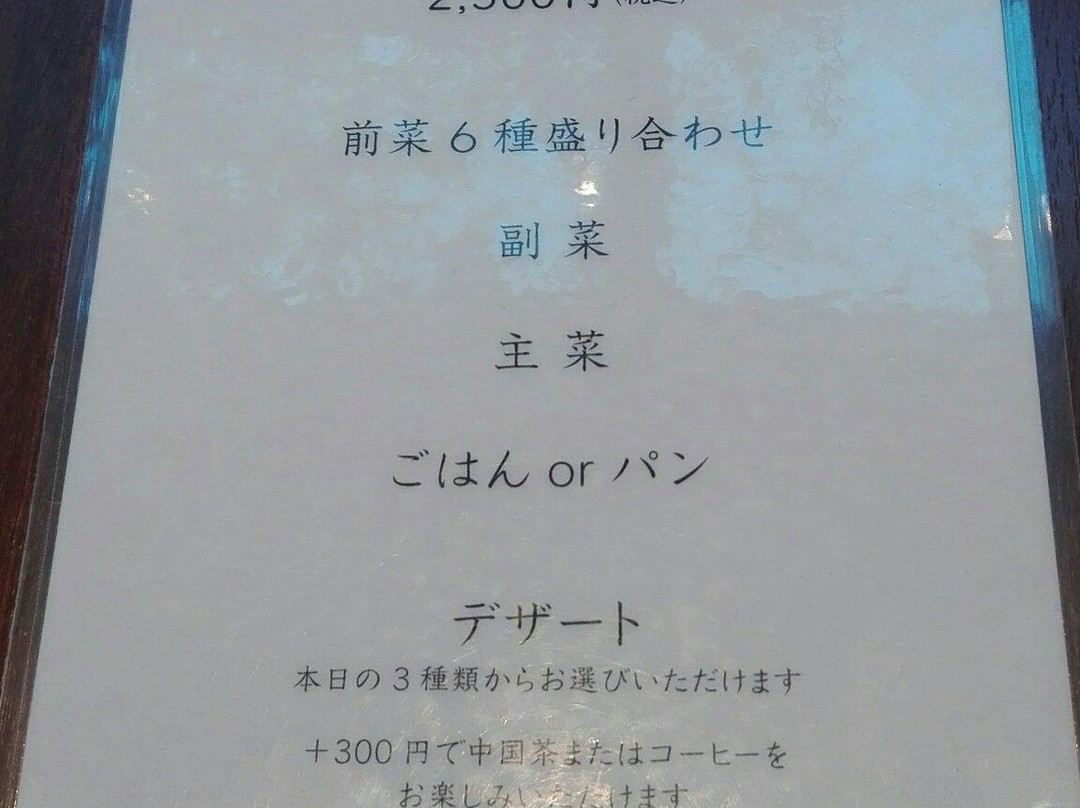 前菜6種盛り合わせ
副菜
主菜
ごはん or パン
デザート
本日の3種類からお選びいただけます
+300円で中国茶またはコーヒーを
お楽しみいただけます